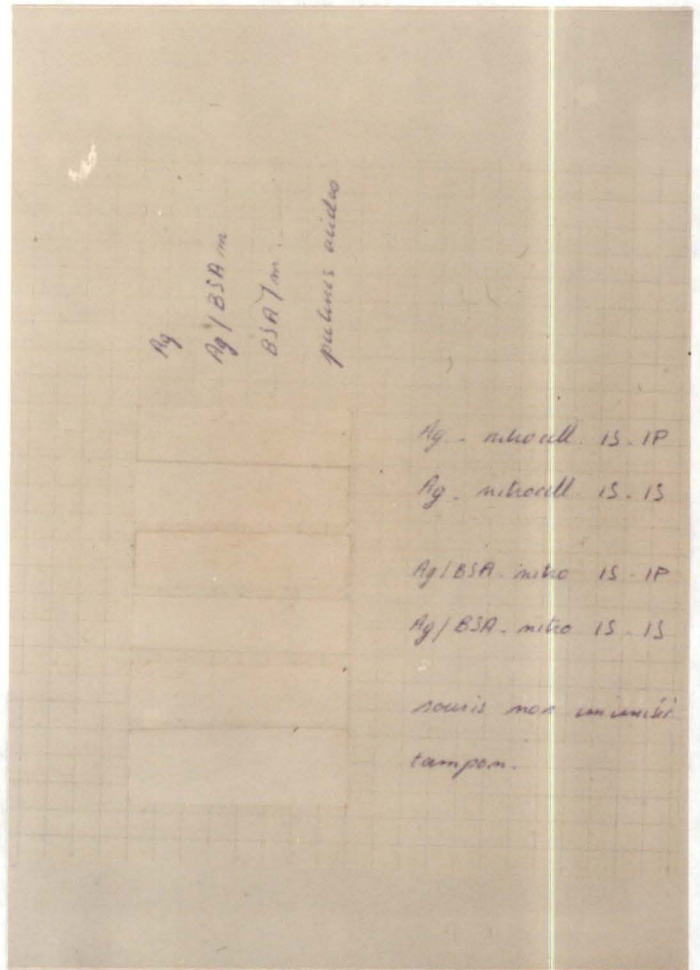 Ag
Ag / BSA m
BSA / m
acides
Ag - nitrocell. IS - IP
Ag - nitrocell. IS - IS
Ag / BSA - nitro IS - IP
Ag / BSA - nitro IS - IS
souris non immunisé
tampon.